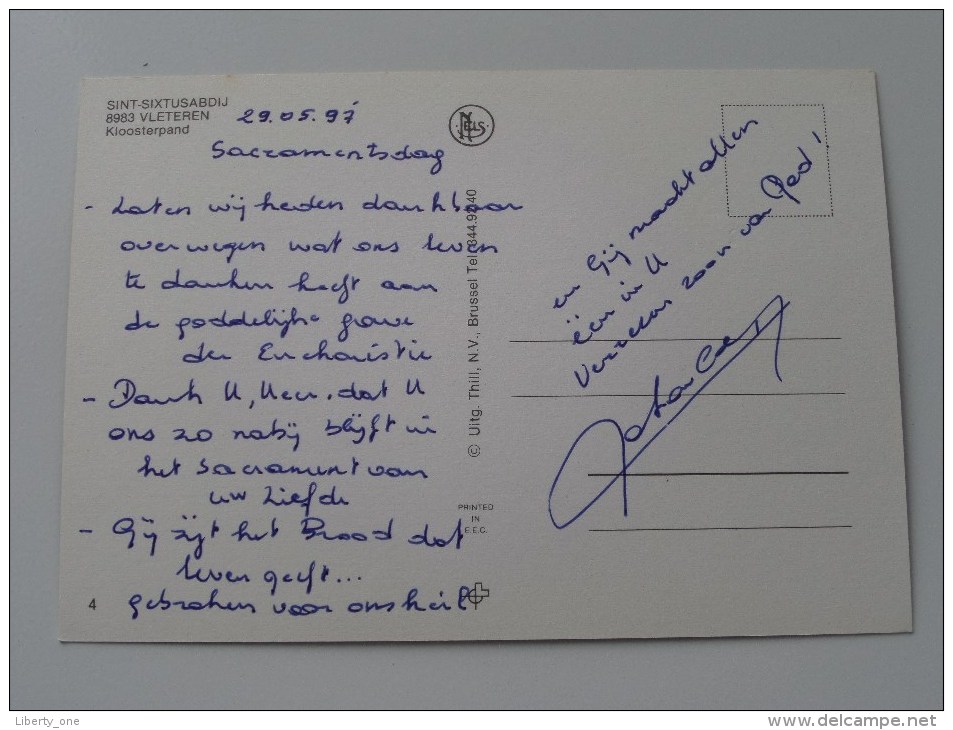 SINT-SIXTUSABDIJ
8983 VLETEREN
Kloosterpand
29.05.97
Sacramentsdag
- Laten wij heden dankbaar
overwegen wat ons leven
te danken heeft aan
de goddelijke gave
der Eucharistie
- Dank U, Heer, dat U
ons zo nabij blijft in
het Sacrament van
uw Liefde
- Gij zijt het Brood dat
leven geeft...
gebroken voor ons heil
4
NELS
© Uitg. Thill, N.V., Brussel Tel. 344.92.40
PRINTED
IN
E.E.C.
en Gij maakt allen
één in U
Verrezen zoon van God!
Liberty_one
www.delcampe.net